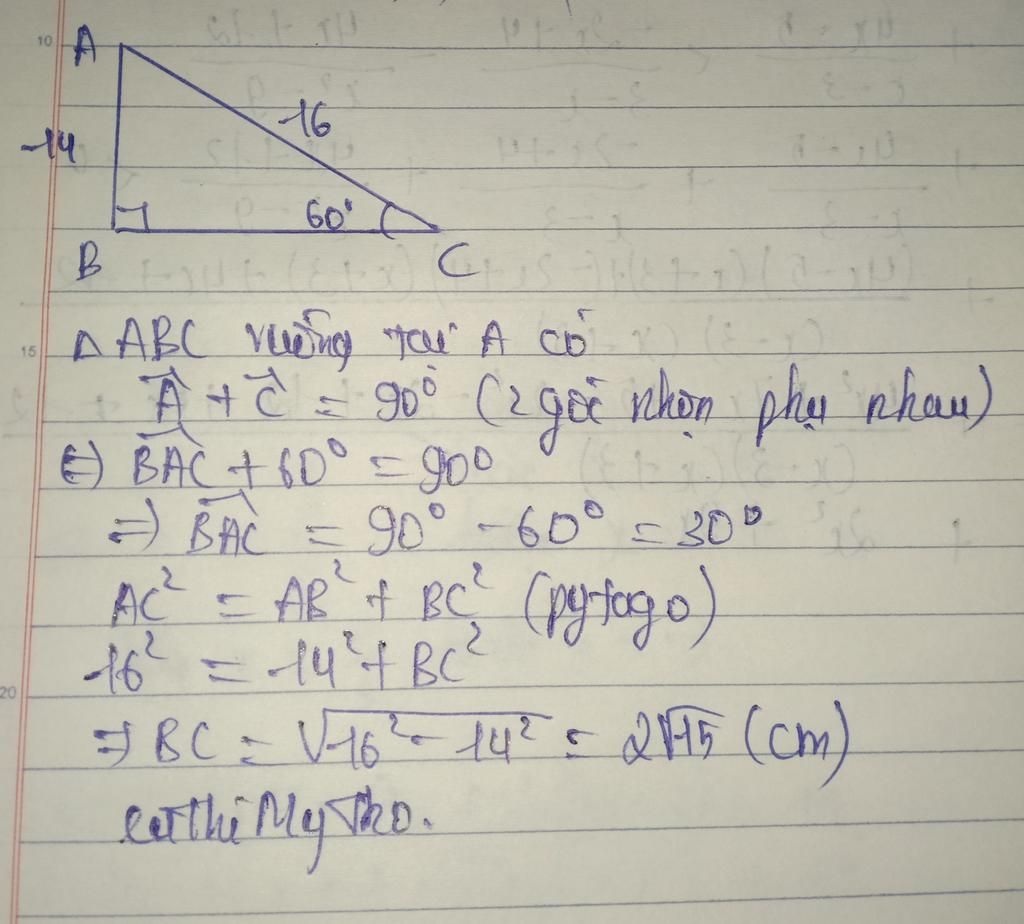 10
A
14
16
60°
B
C
15
△ ABC vuông tại A có
Â + Ĉ = 90° (2 góc nhọn phụ nhau)
⇔ BAC + 60° = 90°
⇒ BAC = 90° - 60° = 30°
AC² = AB² + BC² (pytago)
16² = 14² + BC²
20
⇒ BC = √16² - 14² = 2√15 (cm)
Thi Mỹ Tho.